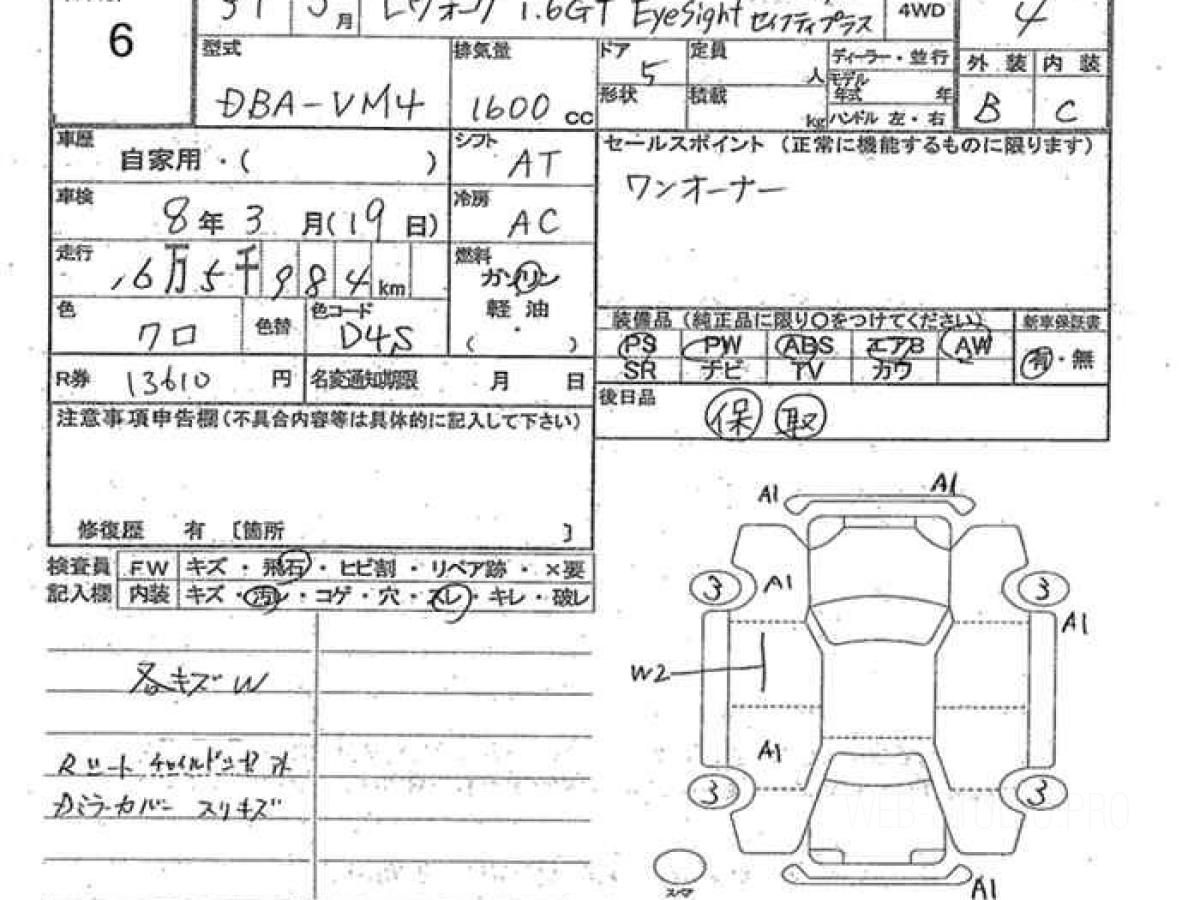 31 3月 レヴォーグ 1.6GT EyeSight セイフティプラス 4WD 4
6
型式 排気量 ドア 5 定員 人 ディーラー・並行 外装 内装
DBA-VM4 1600 cc 形状 積載 kg モデル年式 年 B C
ハンドル 左・右
車歴 自家用・( ) シフト AT セールスポイント(正常に機能するものに限ります)
車検 8年3月(19日) 冷房 AC ワンオーナー
走行 6万5千984km 燃料 ガソリン
軽油
( )
色 クロ 色替 色コード D4S 装備品(純正品に限り○をつけてください) 新車保証書
PS PW ABS エアB AW 有・無
SR ナビ TV カワ
R券 13610円 名変通知期限 月 日 後日品 保 取
注意事項申告欄(不具合内容等は具体的に記入して下さい)
修復歴 有 〔箇所 〕
検査員 FW キズ・飛石・ヒビ割・リペア跡・×要
記入欄 内装 キズ・汚レ・コゲ・穴・スレ・キレ・破レ
各キズW
スリキズ
A1 A1
3 A1 3
A1
W2
A1
3 3
スペア
A1
WEB-STUDIO.PRO